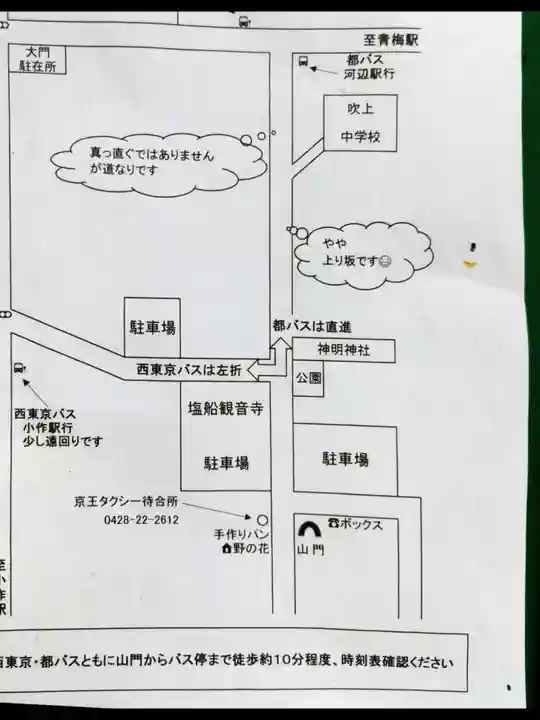 至青梅駅
大門
駐在所
都バス
河辺駅行
吹上
中学校
真っ直ぐではありません
が道なりです
やや
上り坂です
駐車場
都バスは直進
神明神社
西東京バスは左折
公園
西東京バス
小作駅行
少し遠回りです
塩船観音寺
駐車場
駐車場
京王タクシー待合所
0428-22-2612
手作りパン
野の花
☎ボックス
山門
至小作駅
西東京・都バスともに山門からバス停まで徒歩約10分程度、時刻表確認ください